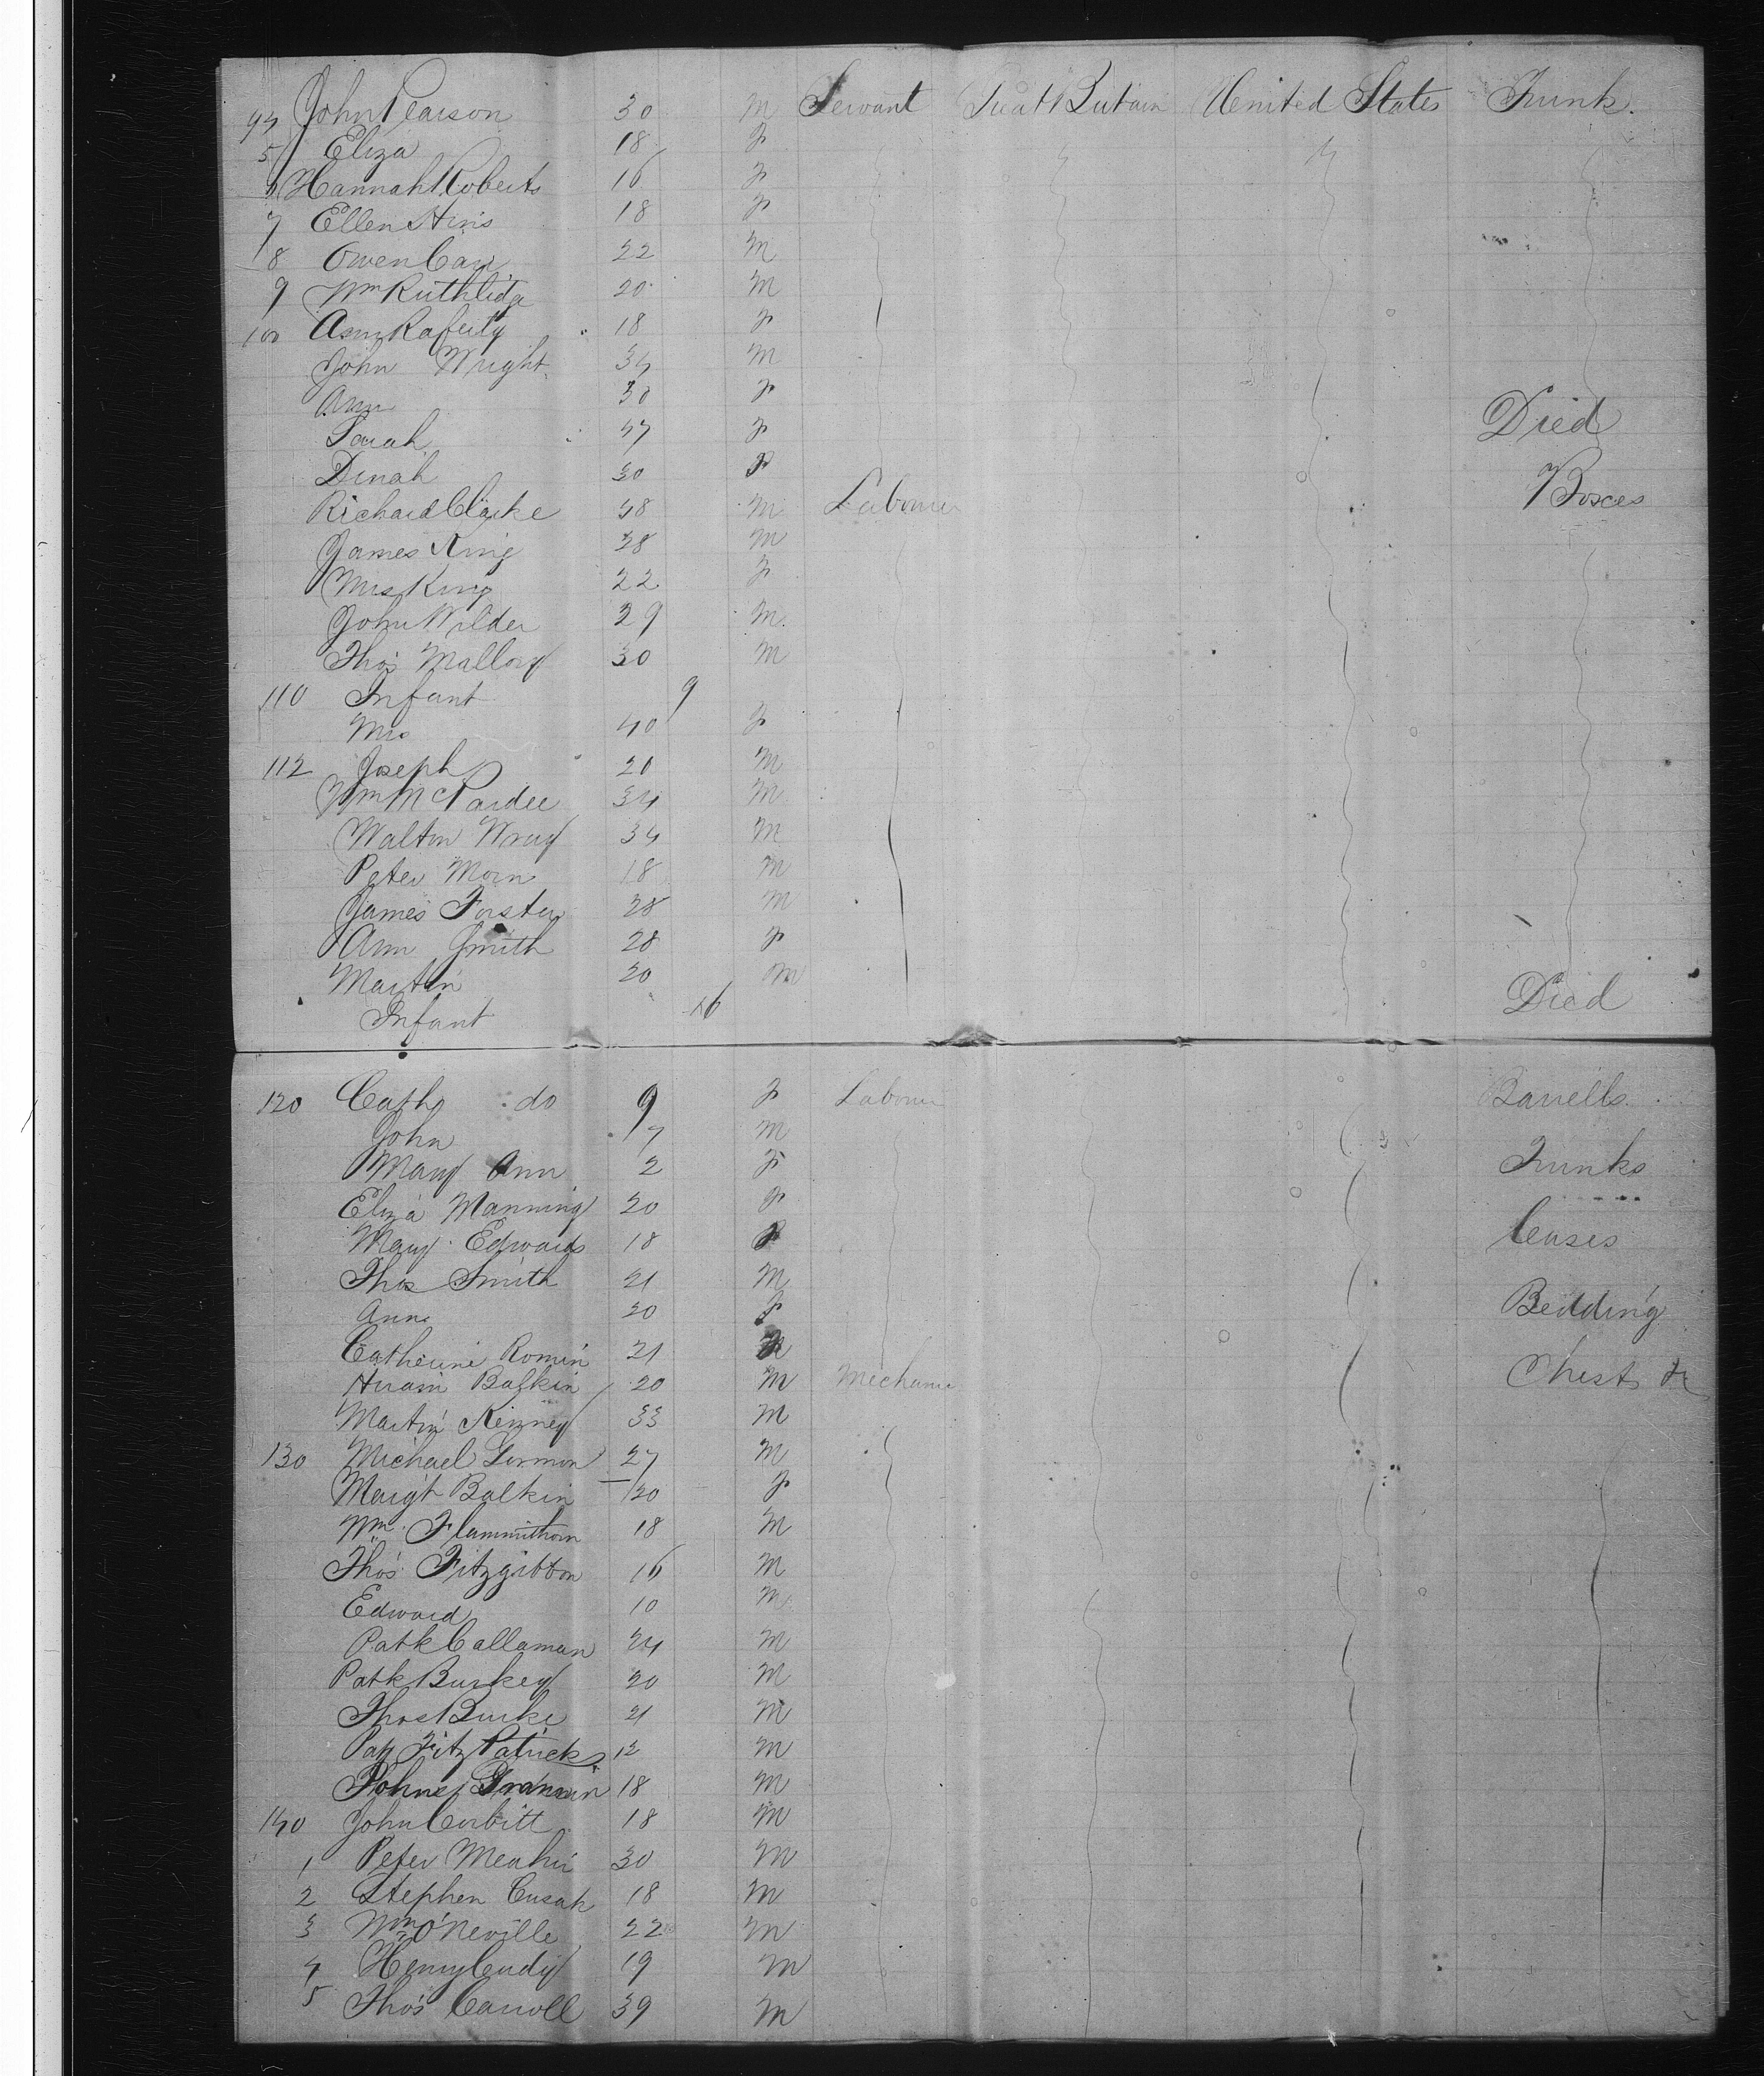 94 John Pearson 30 M Servant Great Britain United States Trunk.
5 Eliza 18 F
6 Hannah Roberts 16 F
7 Ellen 18 F
8 Owen Carr 22 M
9 Wm 20 M
100 Ann Raferty 18 F
John Wright 34 M
Ann 30 F
Sarah 47 F Died
Dinah 30 F
Richard Clarke 48 M Labourer Boxes
James King 28 M
Mrs King 22 F
John Wilder 29 M
Thos Mallory 30 M
110 Infant 9
Mrs 40 F
112 Joseph 20 M
Wm McPardee 34 M
Walton Wray 34 M
Peter Morn 18 M
James Forster 28 M
Ann Smith 28 F
Martin 20 M
Infant 16 Died
120 Cath do 9 F Labourer Barrells
John 7 M
Mary Ann 2 F Trunks
Eliza Manning 20 F
Mary Edwards 18 F Cases
Thos Smith 21 M
Ann 20 F Bedding
Catherine Romin 21
Hiram Balkin 20 M Mechanic Chest &c
Martin Kenney 33 M
130 Michael Gormon 27 M
Margt Balkin 20 F
Wm Flammithorn 18 M
Thos Fitzgibbon 16 M
Edward 10 M
Patk Callaman 24 M
Patk Burkey 20 M
Thos Burke 21 M
Pat Fitz Patrick 12 M
18 M
140 John Corbitt 18 M
1 Peter Meahir 30 M
2 Stephen Cusak 18 M
3 Wm O'Neville 22 M
4 Henry Cudy 19 M
5 Thos Carroll 39 M